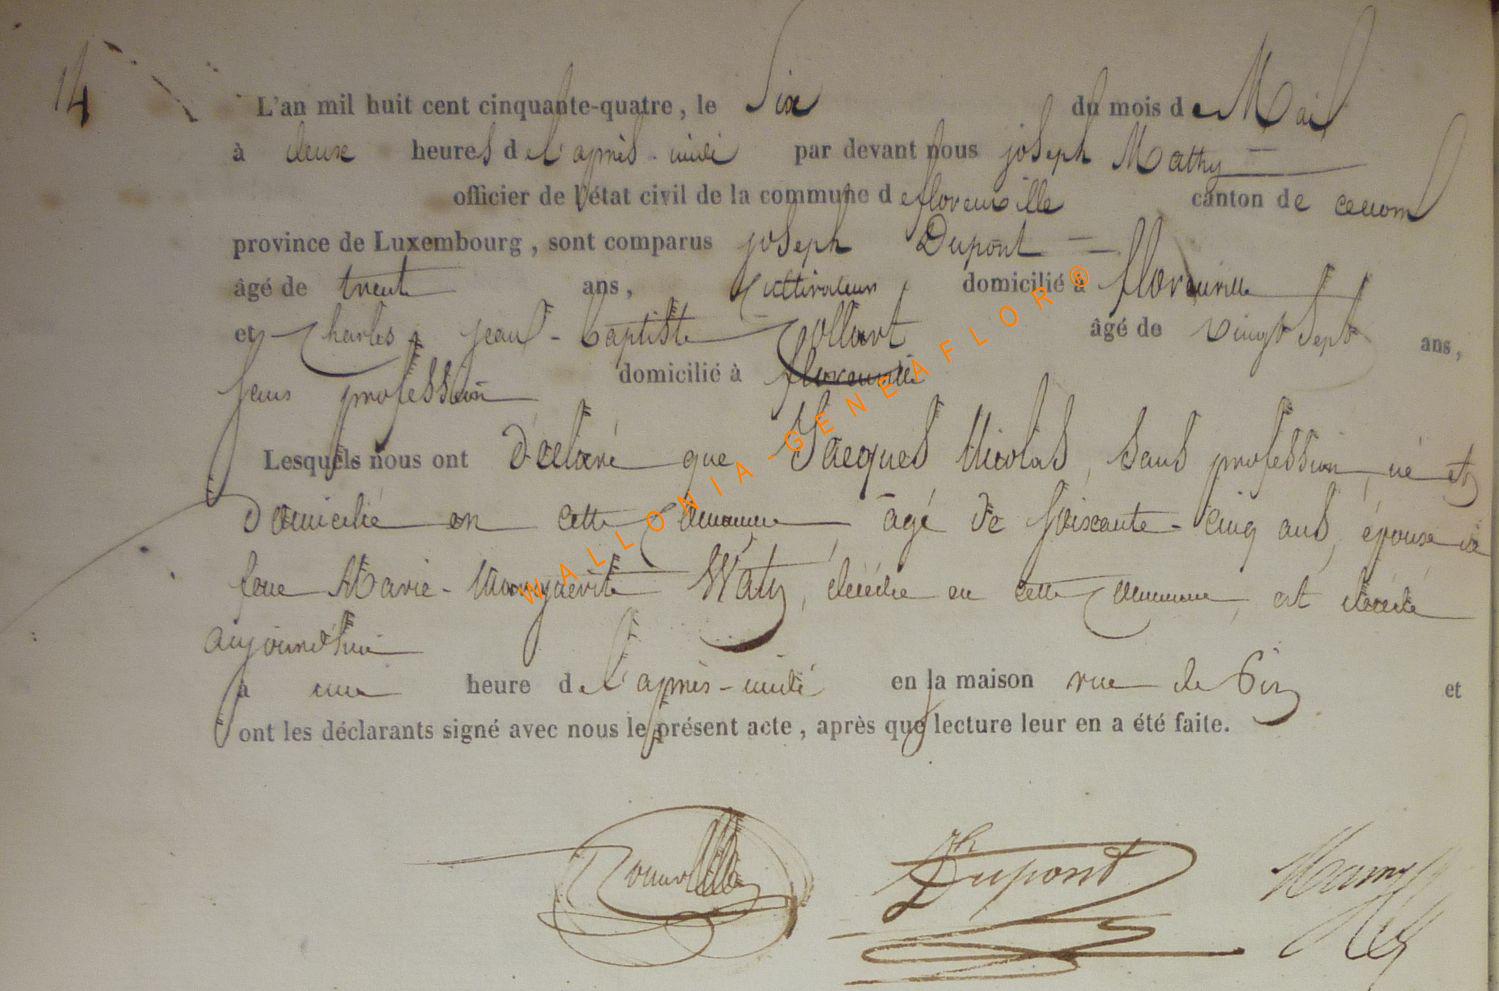 14
L'an mil huit cent cinquante-quatre, le Six du mois de Mai
à deux heures de l'après-midi par devant nous joseph Mathy
officier de l'état civil de la commune de florenville canton de
province de Luxembourg, sont comparus joseph Dupont
âgé de trente ans, Cultivateur domicilié à florenville
et Charles jean-baptiste Collart âgé de vingt Sept ans,
Sans profession domicilié à florenville
Lesquels nous ont déclaré que Jacques Nicolas, Sans profession, né et
domicilié en cette Commune, âgé de Soixante-cinq ans, épouse de
feue Marie-Marguerite Watz, décédée en cette Commune, est décédé
aujourd'hui
à une heure de l'après-midi en la maison rue de et
ont les déclarants signé avec nous le présent acte, après que lecture leur en a été faite.
Jh Dupont
WALLONIA-GENEAFLOR®